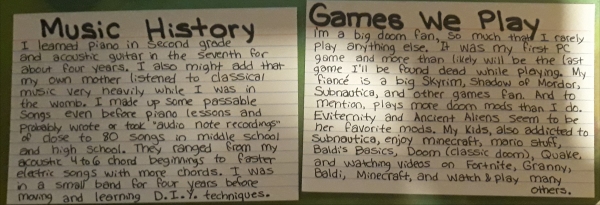 Music History
I learned piano in second grade
and acoustic guitar in the seventh for
about four years. I also might add that
my own mother listened to classical
music very heavily while I was in
the womb. I made up some passable
songs even before piano lessons and
probably wrote or took "audio note recordings"
of close to 80 songs in middle school
and high school. They ranged from my
acoustic 4 to 6 chord beginnings to faster
electric songs with more chords. I was
in a small band for four years before
moving and learning D.I.Y. techniques.
Games We Play
I'm a big doom fan, so much that I rarely
play anything else. It was my first PC
game and more than likely will be the last
game I'll be found dead while playing. My
fiancé is a big Skyrim, Shadow of Mordor,
Subnautica, and other games fan. And to
mention, plays more doom mods than I do.
Eviternity and Ancient Aliens seem to be
her favorite mods. My kids, also addicted to
Subnautica, enjoy minecraft, mario stuff,
Baldi's Basics, Doom (classic doom), Quake,
and watching videos on Fortnite, Granny,
Baldi, Minecraft, and watch & play many
others.